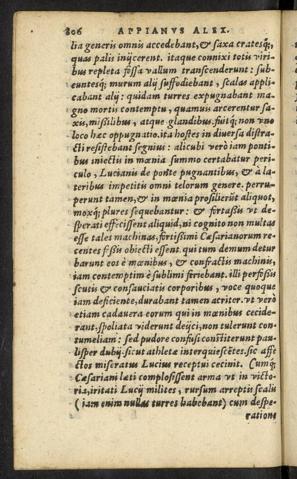 806 APPIANVS ALEX.
lia generis omnis accedebant, & saxa cratesq;,
quas palis inijcerent. itaque connixi totis viri-
bus repleta fossa vallum transcenderunt: sub-
euntesq; murum alij suffodiebant, scalas appli-
cabant alij: quidam turres expugnabant ma-
gno mortis contemptu, quamuis arcerentur sa-
xis, missilibus, atque glandibus. fuitq; non vno
loco hæc oppugnatio. ita hostes in diuersa distra-
cti resistebant segnius: alicubi verò iam ponti-
bus iniectis in mœnia summo certabatur peri-
culo, Lucianis de ponte pugnantibus, & à la-
teribus impetitis omni telorum genere. perru-
perunt tamen, & in mœnia prosilierũt aliquot,
moxq; plures sequebantur: & fortassis vt de-
sperati effecissent aliquid, ni cognito non multas
esse tales machinas, fortissimi Cæsarianorum re-
centes fessis obiecti essent. qui tum demum detur
barunt eos è mœnibus, & confractis machinis,
iam contemptim è sublimi feriebant. illi perfossis
scutis & consauciatis corporibus, voce quoque
iam deficiente, durabant tamen acriter. vt verò
etiam cadauera eorum qui in mœnibus cecide-
rant, spoliata viderunt deijci, non tulerunt con-
tumeliam: sed pudore confusi constiterunt pau-
lisper dubij. sicut athletæ interquiescẽtes. sic affe-
ctos miseratus Lucius receptui cecinit. Cumq;
Cæsariani læti complosissent arma vt in victo-
ria, iritati Lucij milites, rursum arreptis scalis
(iam enim nullas turres habebant) cum despe-
ratione